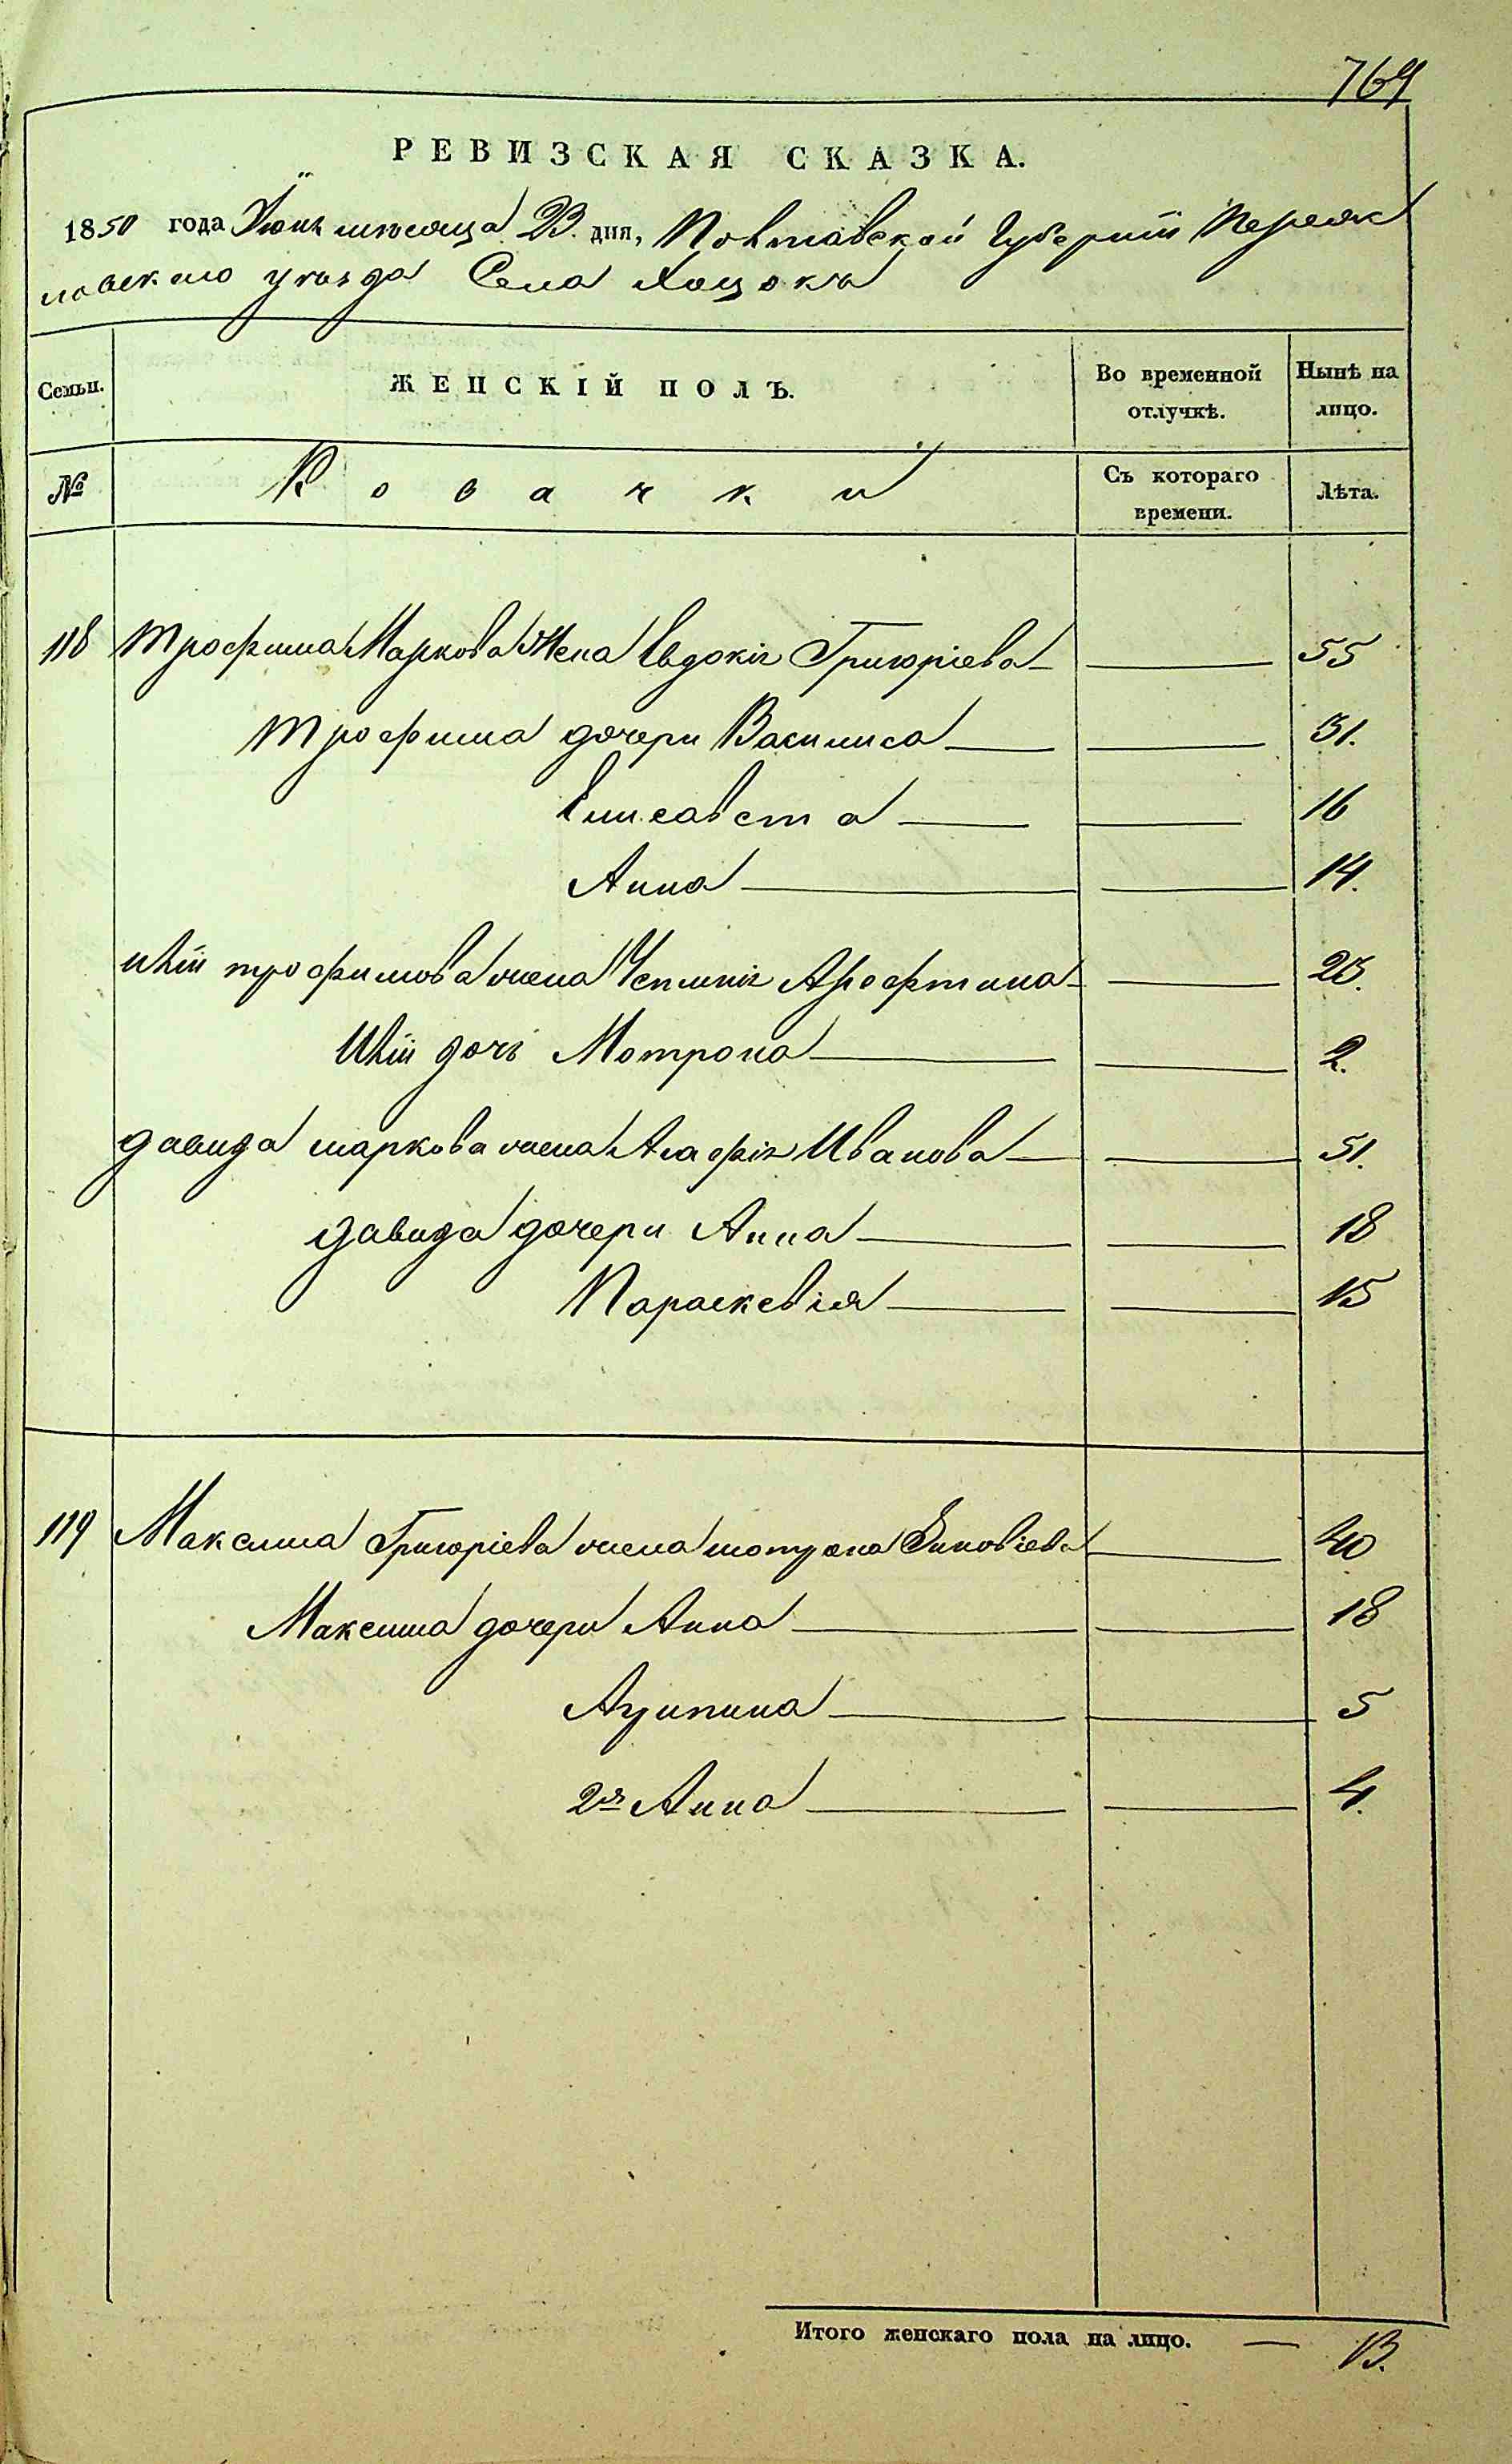 764
РЕВИЗСКАЯ СКАЗКА.
1850 года Іюнь мѣсяца 23. дня, Полтавской Губерніи Переяс
лавского уѣзда Села Хоцокъ
Семьи. ЖЕНСКІЙ ПОЛЪ. Во временной отлучкѣ. Нынѣ на лицо.
№ Козачки Съ котораго времени. Лѣта.
118 Трофима Маркова Жена Евдокія Григоріева 55
Трофима дочери Василиса 31.
Елисавета 16
Анна 14.
трофимова жена 23.
дочь Мотрона 2.
давида маркова жена Агафія Иванова 51.
Давида дочери Анна 18
Параскевія 15
119 Максима Григоріева жена мотрона Зиновіева 40
Максима дочери Анна 18
Акилина 5
2я Анна 4.
Итого женскаго пола на лицо. — 13.